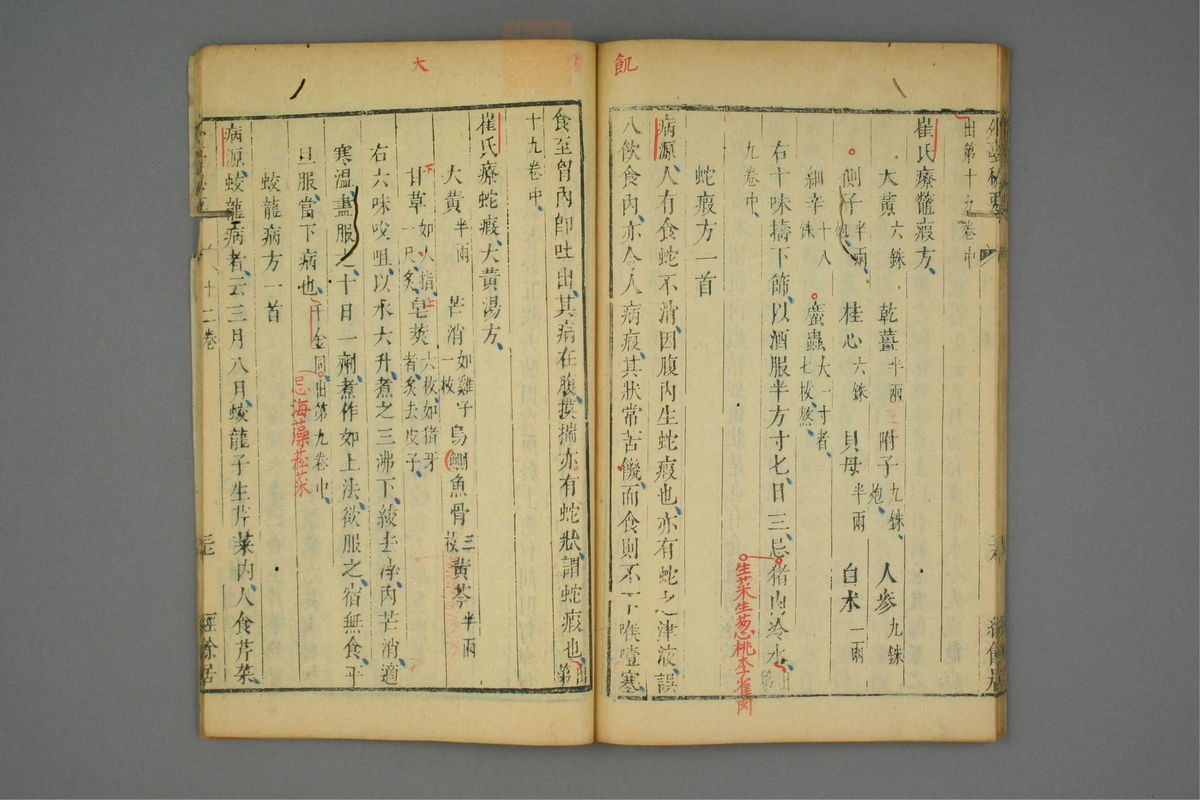 飢
出第十九卷中
崔氏療鼈瘕方
大黃六銖 乾薑半兩 附子九銖炮 人參九銖
側子半兩炮 桂心六銖 貝母半兩 白朮一兩
細辛十八銖 䗪蟲大一寸者七枚熬
右十味擣下篩以酒服半方寸匕日三忌猪肉冷水
生菜生葱桃李雀肉
九卷中
蛇瘕方一首
病源人有食蛇不消因腹內生蛇瘕也亦有蛇之津液誤
入飲食內亦令人病瘕其狀常苦饑而食則不下喉噎塞
大
食至胷內即吐出其病在腹摸揣亦有蛇狀謂蛇瘕也出第
十九卷中
崔氏療蛇瘕大黃湯方
大黃半兩 芒消如雞子一枚 烏鰂魚骨三枚 黃芩半兩
甘草如人指一尺炙 皂莢六枚如猪牙者炙去皮子
右六味㕮咀以水六升煮之三沸下綾去滓內芒消適
寒溫盡服之十日一劑煮作如上法欲服之宿無食平
旦服當下病也千金同出第九卷中
忌海藻菘菜
蛟龍病方一首
病源蛟龍病者云三月八月蛟龍子生芹菜內人食芹菜
十二卷
經餘居